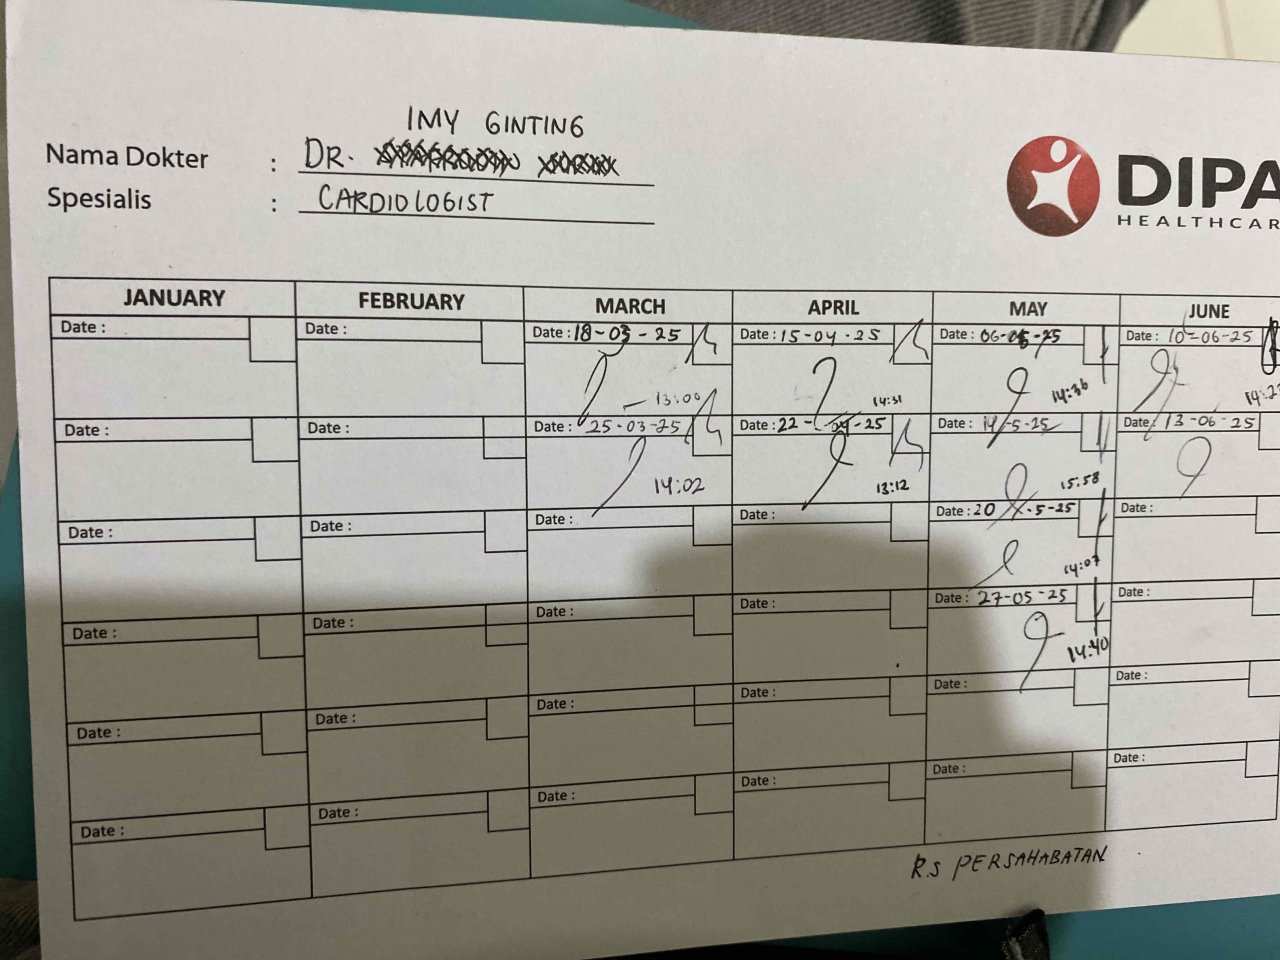 IMY GINTING
Nama Dokter : DR.
Spesialis : CARDIOLOGIST
DIPA
HEALTHCAR
JANUARY FEBRUARY MARCH APRIL MAY JUNE
Date : Date : Date : 18-03-25 Date : 15-04-25 Date : 06-05-25 Date : 10-06-25
13:00 14:31 14:36
Date : Date : Date : 25-03-25 Date : 22-04-25 Date : 14-5-25 Date : 13-06-25
14:02 13:12 15:58
Date : Date : Date : Date : Date : 20-5-25 Date :
14:07
Date : Date : Date : Date : Date : 27-05-25 Date :
14:40
Date : Date : Date : Date : Date : Date :
Date : Date : Date : Date : Date : Date :
R.S PERSAHABATAN